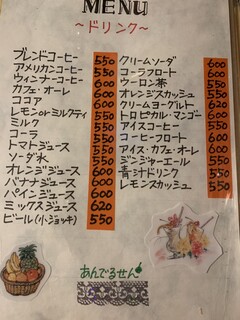 MENU
～ドリンク～
ブレンドコーヒー 550
アメリカンコーヒー 550
ウィンナーコーヒー 600
カフェ・オーレ 600
ココア 600
Lemonorミルクティ 550
ミルク 550
コーラ 550
トマトジュース 550
ソーダ水 550
オレンジジュース 600
バナナジュース 600
パインジュース 600
ミックスジュース 620
ビール(小ジョッキ) 550
クリームソーダ 600
コーラフロート 600
ウーロン茶 550
オレンジスカッシュ 550
クリームヨーグルト 620
トロピカル・マンゴー 600
アイスコーヒー 550
コーヒーフロート 600
アイス・カフェ・オーレ 600
ジンジャーエール 550
青汁ドリンク 550
レモンスカッシュ 550
あんでるせん